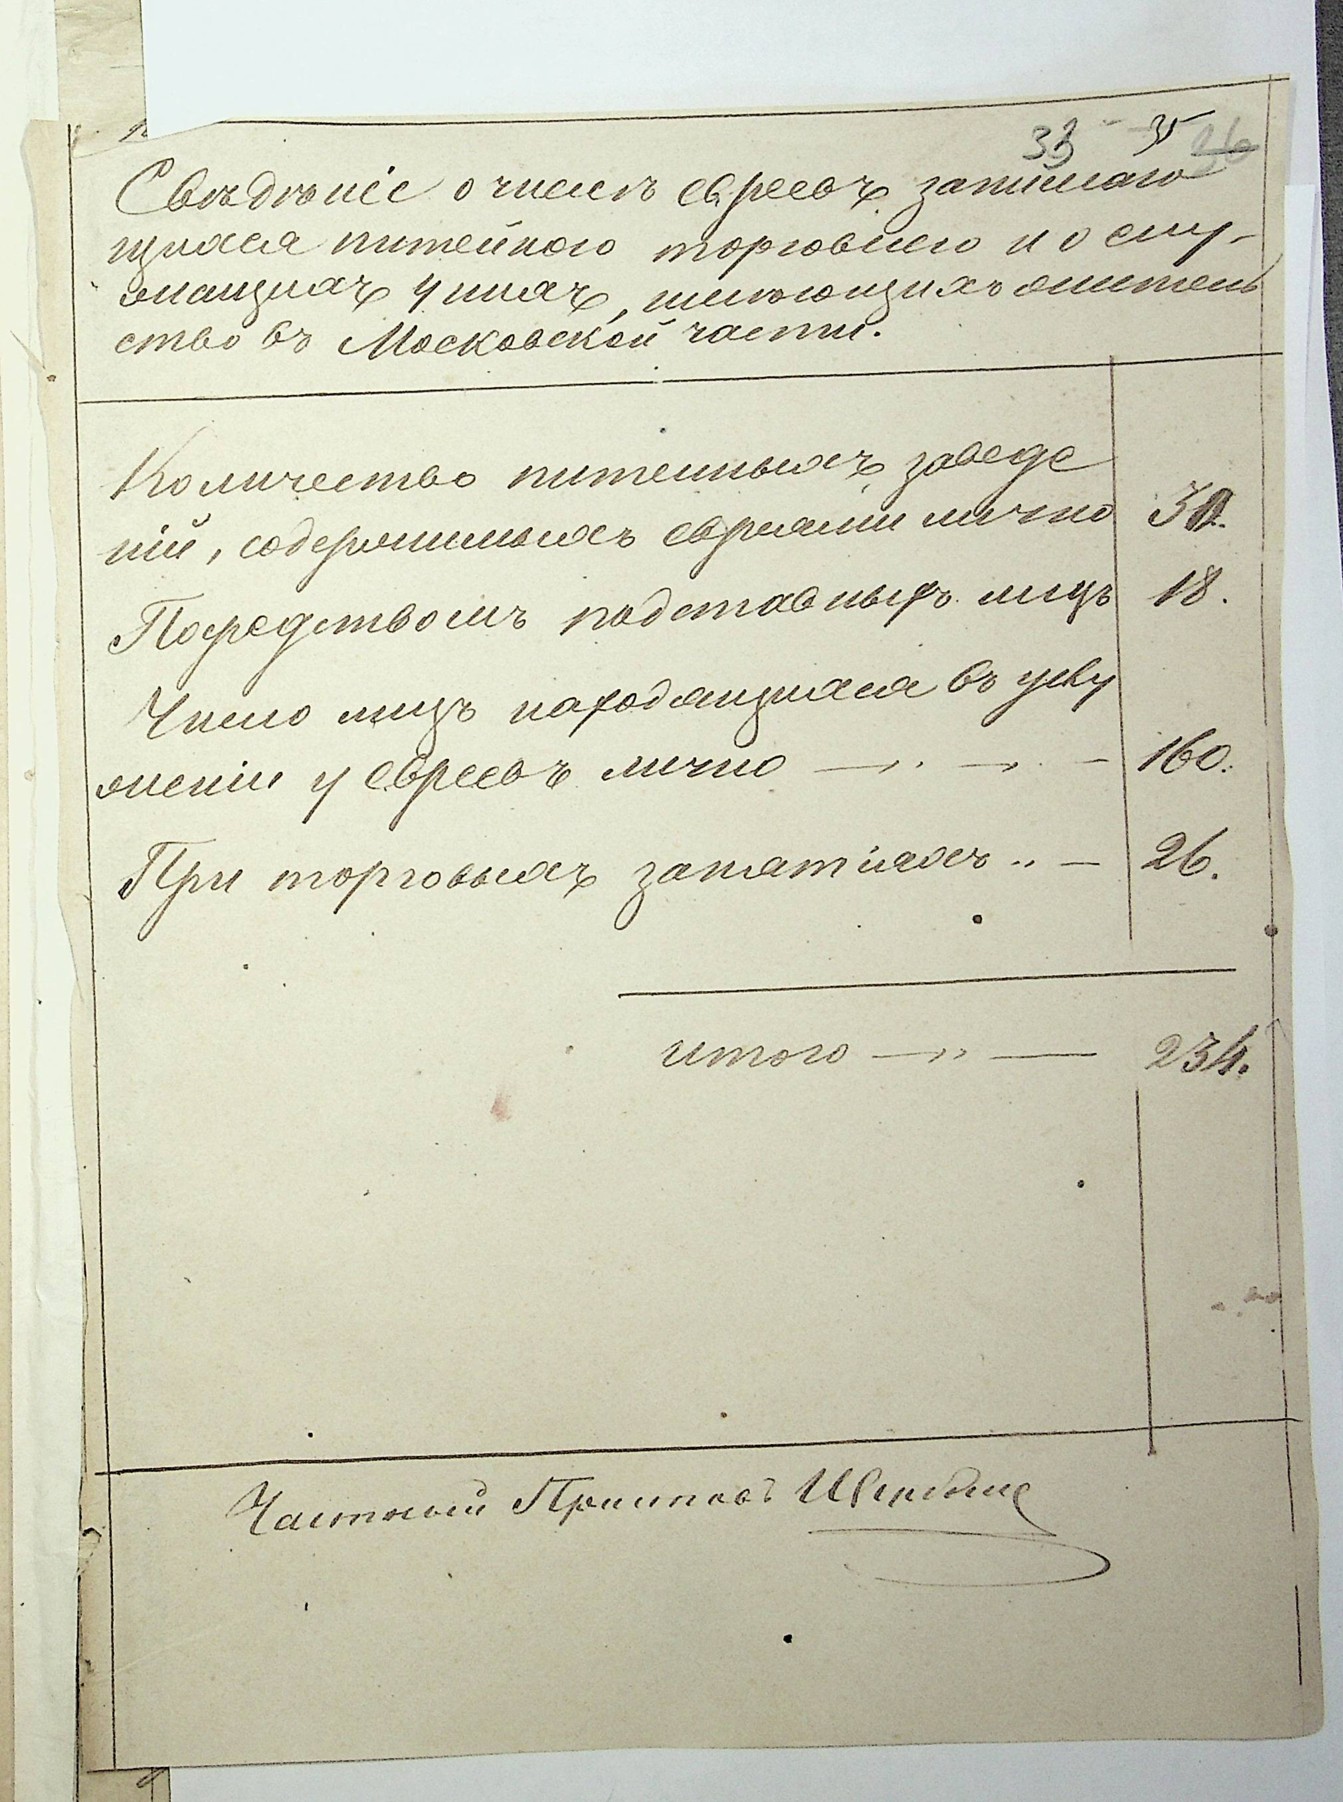 33 35 26
Сведѣніе о числѣ евреевъ занимаю
щихся питейною торговлею и о слу-
жащихъ у нихъ, имеющихъ житель
ство въ Московской части.
Количество питейныхъ заведе
ній, содержимыхъ евреями лично 30.
Посредствомъ подставныхъ лицъ 18.
Число лицъ находящихся въ услу
женіи у евреевъ лично 160.
При торговыхъ занятіяхъ 26.
итого 234.
Частный Приставъ